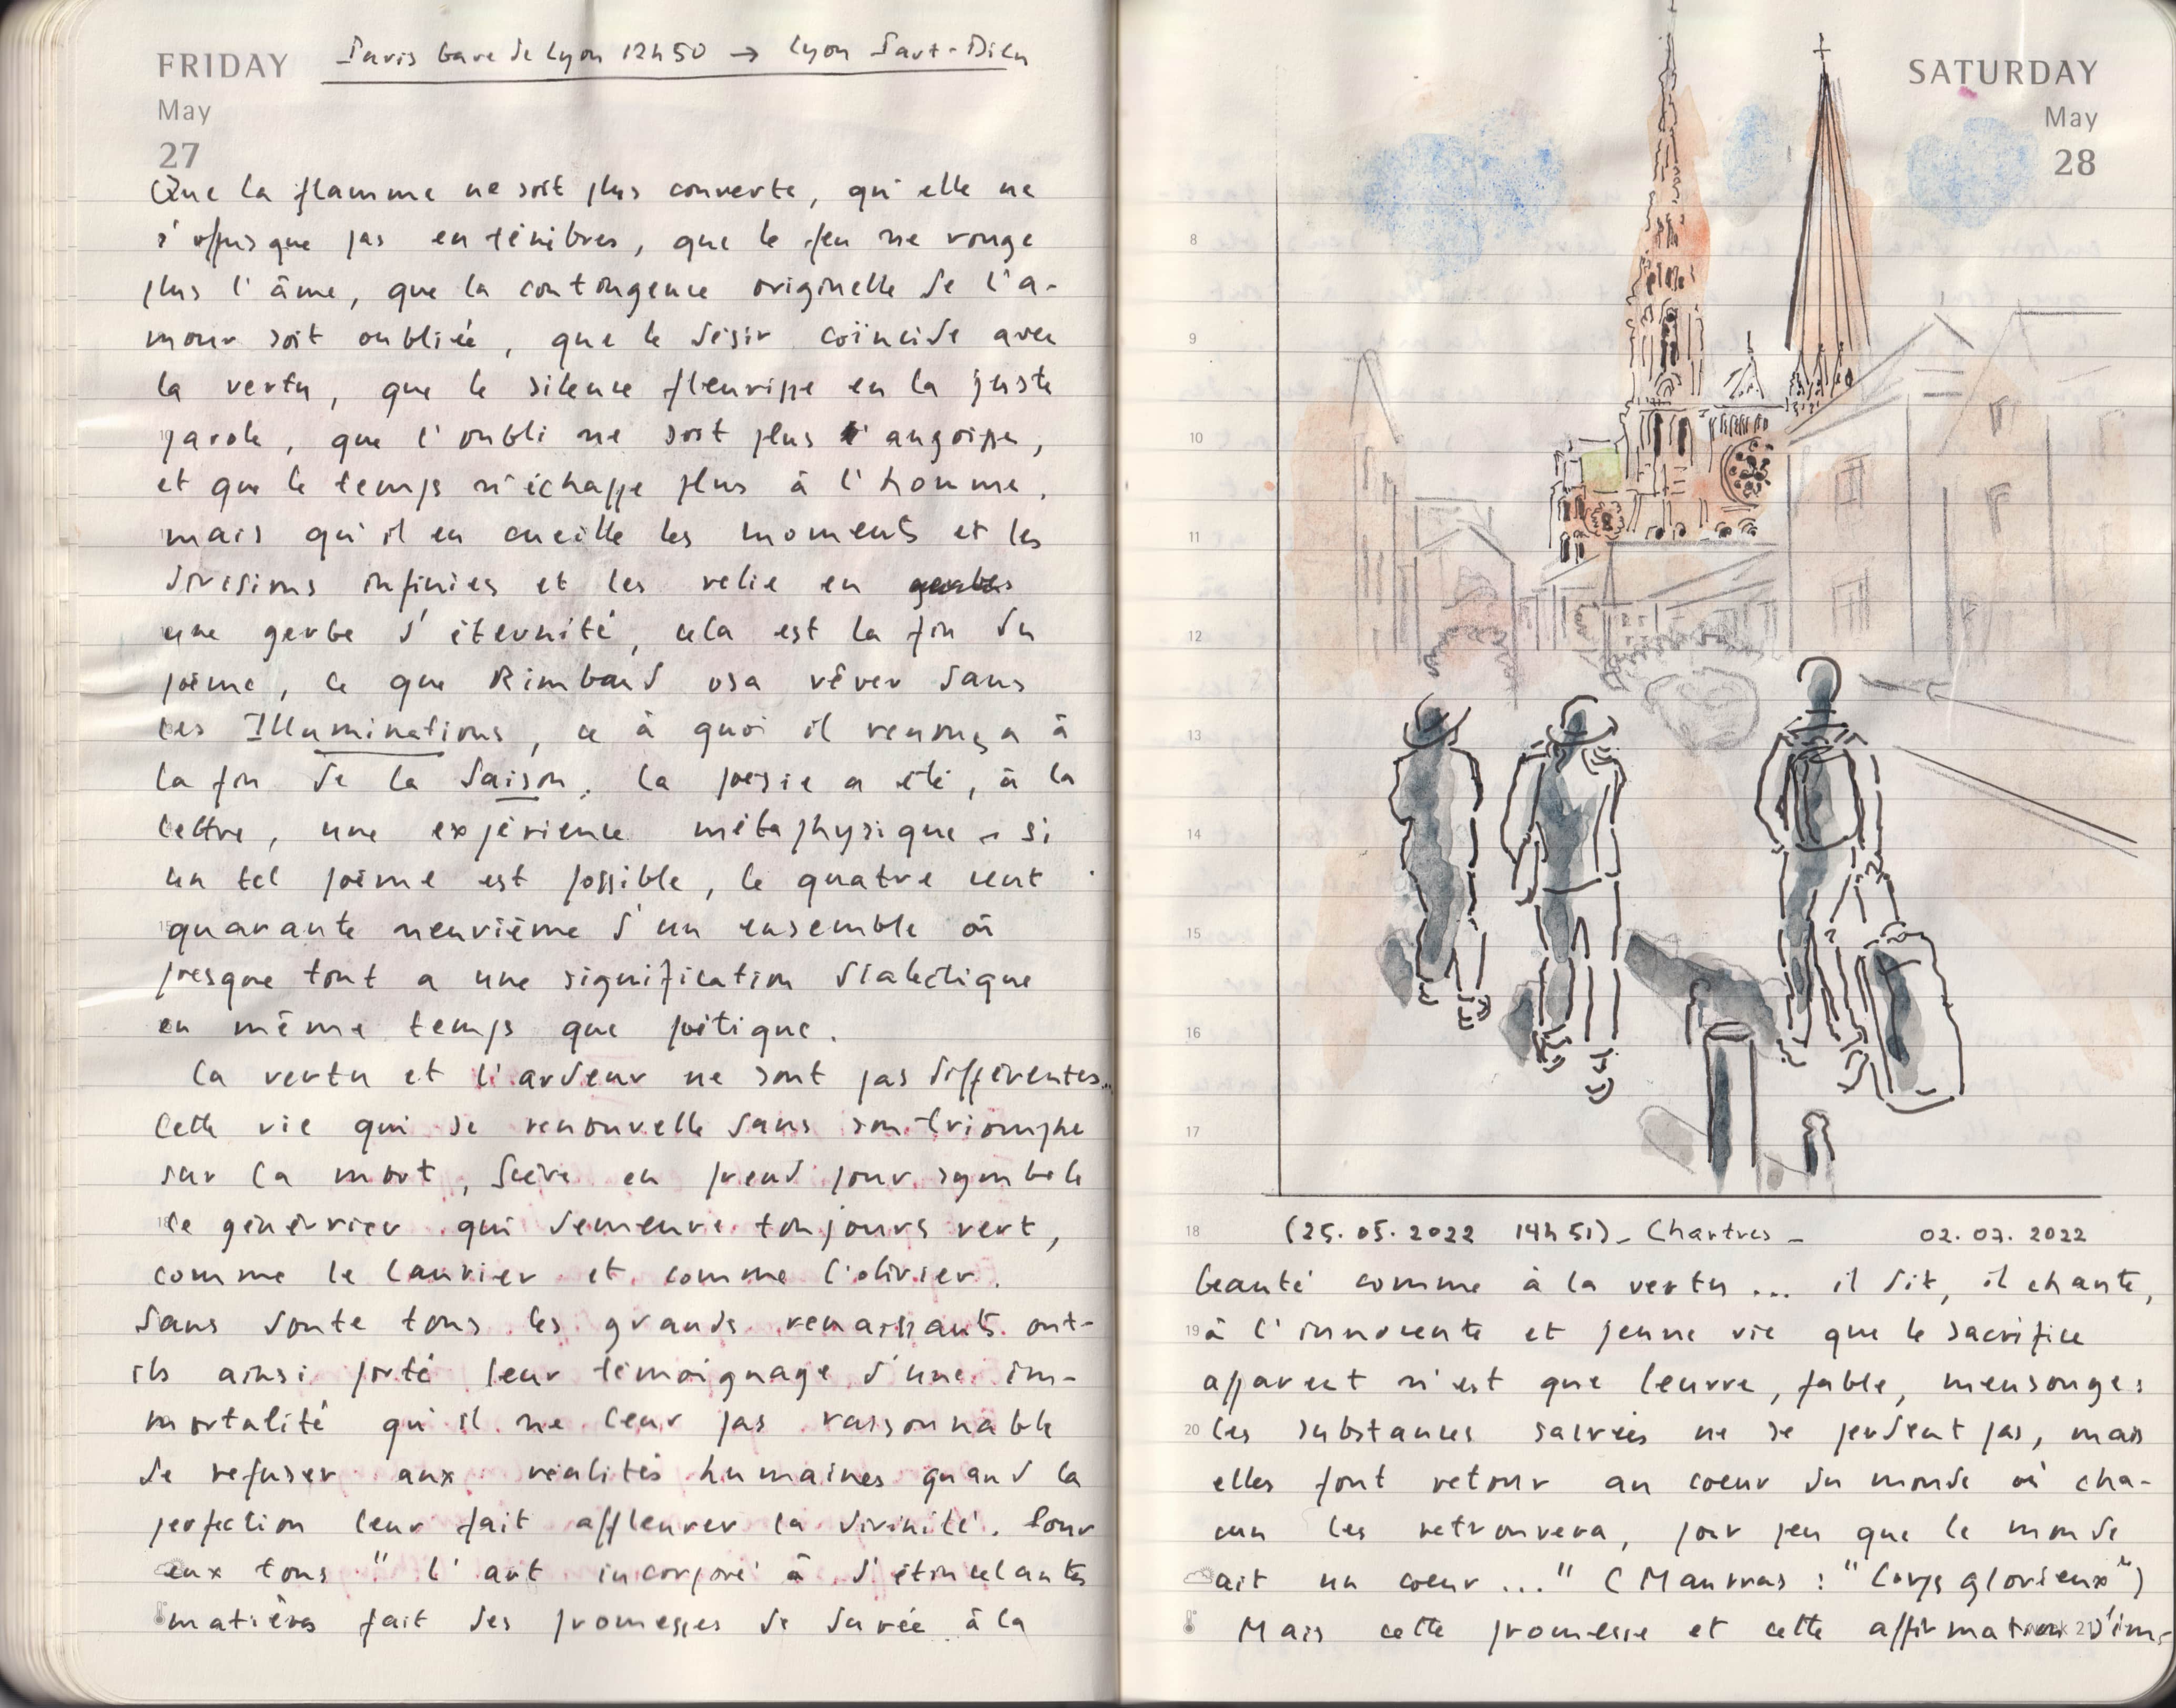 FRIDAY
Paris Gare de Lyon 12h50 → Lyon Part-Dieu
May
27
Que la flamme ne soit plus couverte, qu'elle ne
s'offusque pas en ténèbres, que le feu ne ronge
plus l'âme, que la contingence originelle de l'a-
mour soit oubliée, que le désir coïncide avec
la vertu, que le silence fleurisse en la juste
parole, que l'oubli ne soit plus l'angoisse,
et que le temps n'échappe plus à l'homme,
mais qu'il en cueille les moments et les
divisions infinies et les relie en gerbes
une gerbe d'éternité, cela est la fin du
poème, ce que Rimbaud osa rêver dans
les Illuminations, ce à quoi il renonça à
la fin de la Saison, la poésie a été, à la
lettre, une expérience métaphysique - si
un tel poème est possible, le quatre cent
quarante neuvième d'un ensemble où
presque tout a une signification dialectique
en même temps que poétique.
La vertu et l'ardeur ne sont pas différentes..
Cette vie qui se renouvelle dans son triomphe
sur la mort, Scève en prend pour symbole
le genévrier qui demeure toujours vert,
comme le laurier et comme l'olivier.
Sans doute tous les grands renaissants ont-
ils ainsi porté leur témoignage d'une im-
mortalité qu'il ne leur pas raisonnable
de refuser aux réalités humaines quand la
perfection leur fait affleurer la divinité. Pour
eux tous " l'art incorporé à d'étincelantes
matières fait des promesses de durée à la
SATURDAY
May
28
8
9
10
11
12
13
14
15
16
17
18
(25.05.2022 14h51)_ Chartres _ 02.07.2022
beauté comme à la vertu ... il dit, il chante,
19 à l'innocente et jeune vie que le sacrifice
apparent n'est que leurre, fable, mensonge:
20 les substances sacrées ne se perdent pas, mais
elles font retour au coeur du monde où cha-
cun les retrouvera, pour peu que le monde
ait un coeur ..." (Maurras : "Corps glorieux")
Mais cette promesse et cette affirmation d'im-